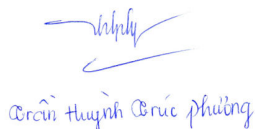 Trần Huỳnh Trúc Phương